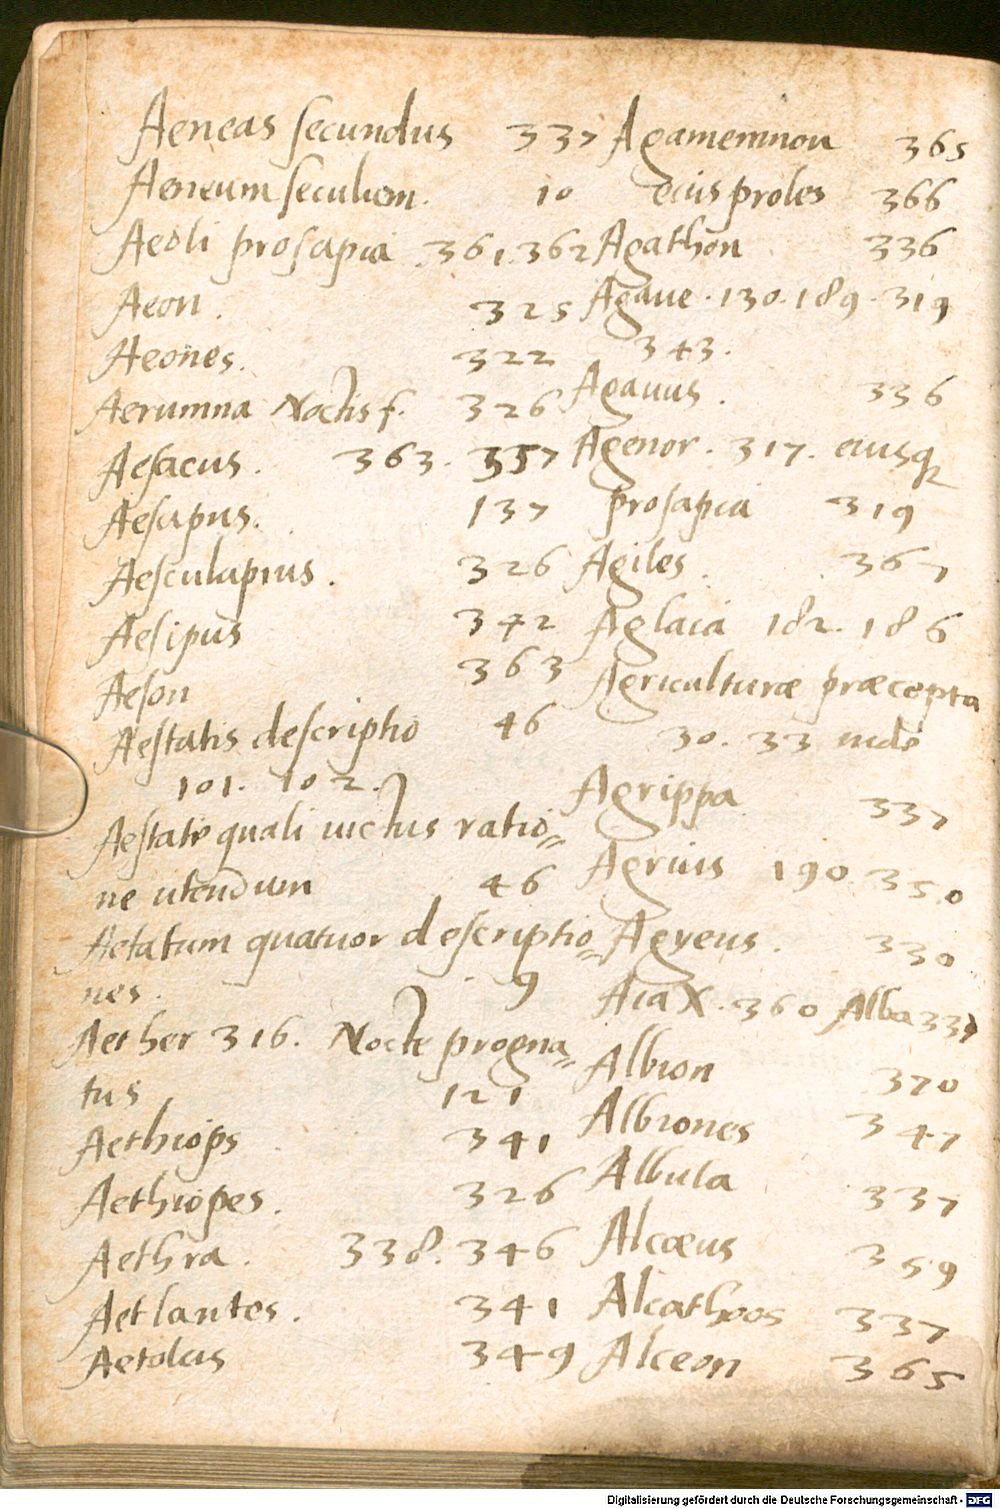 Aeneas secundus 337
Aeneum seculum. 10
Aeoli prosapia 361. 362
Aeon. 325
Aeones. 322
Aerumna Noctis f. 326
Aesacus. 363. 357
Aesapus. 137
Aesculapius. 326
Aesipus 342
Aeson 363
Aestatis descriptio 46
101. 102.
Aestate quali uictus ratio=
ne utendum 46
Aetatum quatuor descriptio=
nes. 9
Aether 316. Nocte progna=
tus 121
Aethiops 341
Aethiopes. 326
Aethra. 338. 346
Aetlantes. 341
Aetolus 349
Agamemnon 365
eius proles 366
Agathon 336
Agaue. 130. 189. 319
343.
Agauus. 336
Agenor. 317. eiusq
prosapia 319
Agiles. 367
Aglaia 182. 186
Agriculturæ præcepta
30. 33 inde
Agrippa 337
Agrius 190. 350
Agyeus. 330
Aiax. 360 Alba 337
Albion 370
Albiones 347
Albula 337
Alcæus 359
Alcathoos 337
Alceon 365
Digitalisierung gefördert durch die Deutsche Forschungsgemeinschaft - DFG